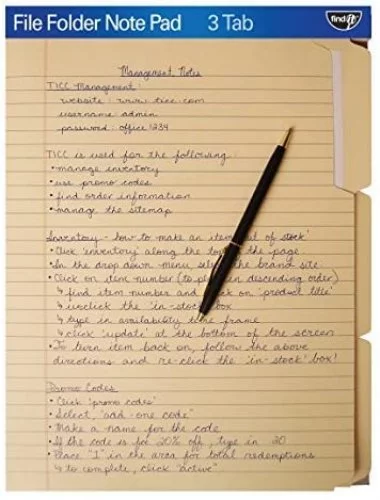 File Folder Note Pad 3 Tab
find it
Management Notes
TICC Management:
website: www.ticc.com
username: admin
password: office1234
TICC is used for the following:
• manage inventory
• use promo codes
• find order information
• manage the sitemap
Inventory - how to make an item out of stock'
• Click 'inventory' along the top of the page
• In the drop down menu, select the brand site
• Click on item number (to in descending order)
↳ find item number and click on 'product title'
↳ unclick the 'in-stock' box
↳ type in availability time frame
↳ click 'update' at the bottom of the screen
• To turn item back on, follow the above
directions and re-click the 'in-stock' box!
Promo Codes
• Click 'promo codes'
• Select, "add-one code"
• Make a name for the code
• If the code is for 20% off, type in 20
• Place "1" in the area for total redemptions
↳ to complete, click "active"